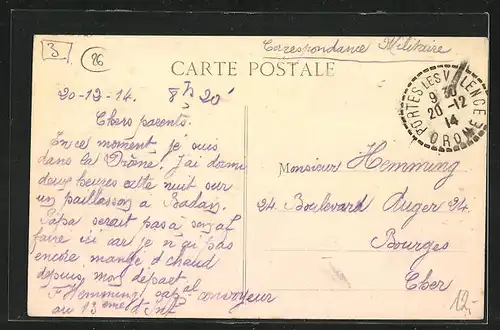 3
26
Correspondance Militaire
CARTE POSTALE
PORTES LES VALENCE
9 30
20-12
14
DROME
20-12-14. 8h 20'
Chers parents.
En ce moment, je suis
dans la Drôme. J'ai dormi
deux heures cette nuit sur
un paillasson à Badan.
Papa serait pas à son af
faire ici car je n'ai pas
encore mangé d'chaud
depuis mon départ
F Hemming, cap al convoyeur
au 13 ème d'Inf
Monsieur Hemming
24 Boulevard Auger 24.
Bourges
Cher
12,-